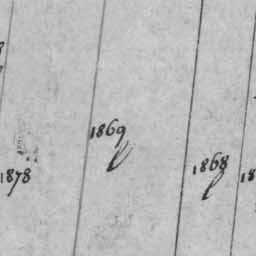 1869
1868
1878